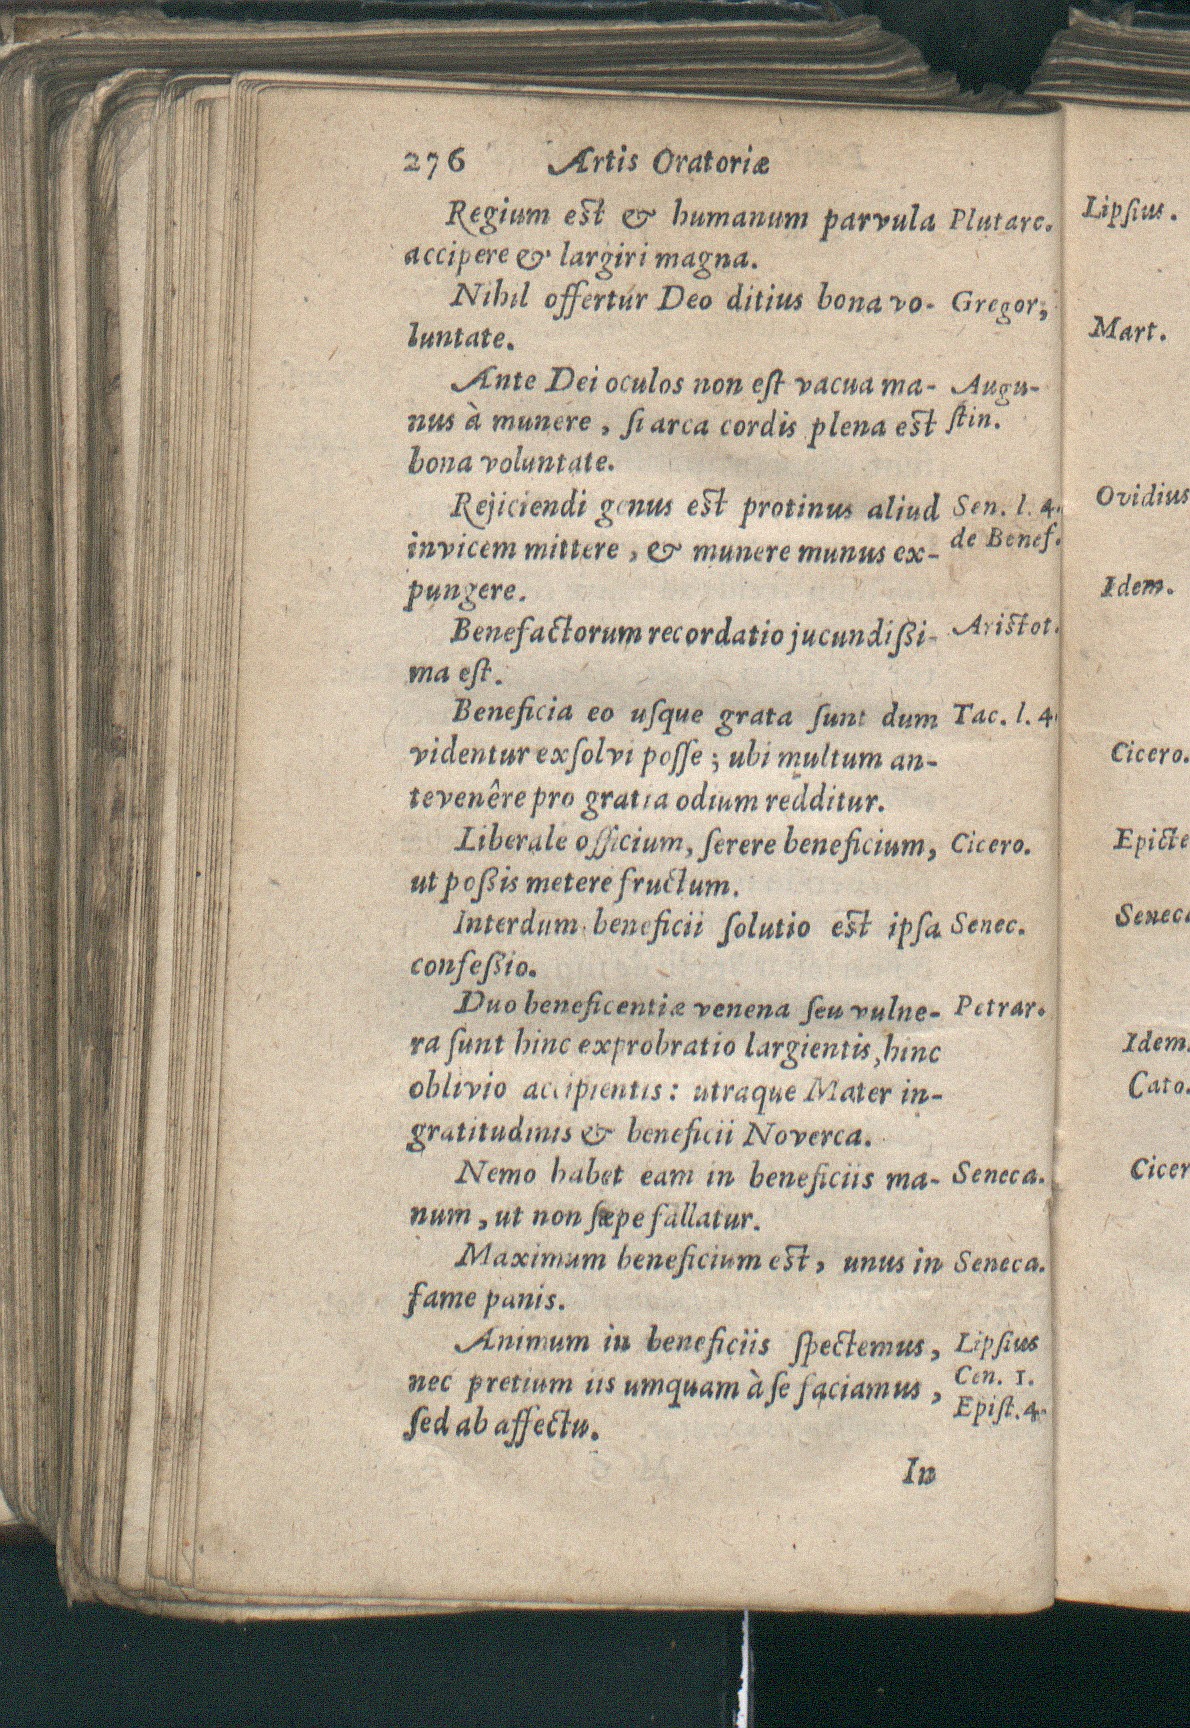 276 Artis Oratoriæ
Regium est & humanum parvula Plutarc.
accipere & largiri magna.
Nihil offertur Deo ditius bona vo- Gregor,
luntate.
Ante Dei oculos non est vacua ma- Augu-
nus à munere, si arca cordis plena est stin.
bona voluntate.
Rejiciendi genus est protinus aliud Sen. l. 4.
invicem mittere, & munere munus ex- de Benef.
pungere.
Benefactorum recordatio jucundißi- Aristot.
ma est.
Beneficia eo usque grata sunt dum Tac. l. 4
videntur exsolvi posse; ubi multum an-
tevenêre pro gratia odium redditur.
Liberale officium, serere beneficium, Cicero.
ut poßis metere fructum.
Interdum beneficii solutio est ipsa Senec.
confeßio.
Duo beneficentiæ venena seu vulne- Petrar.
ra sunt hinc exprobratio largientis, hinc
oblivio accipientis: utraque Mater in-
gratitudinis & beneficii Noverca.
Nemo habet eam in beneficiis ma- Seneca.
num, ut non sæpe fallatur.
Maximum beneficium est, unus in Seneca.
fame panis.
Animum in beneficiis spectemus, Lipsius
nec pretium iis umquam à se faciamus, Cen. 1.
sed ab affectu. Epist. 4.
In
Lipsius.
Mart.
Ovidius
Idem.
Cicero.
Epicte
Seneca
Idem.
Cato.
Cicer